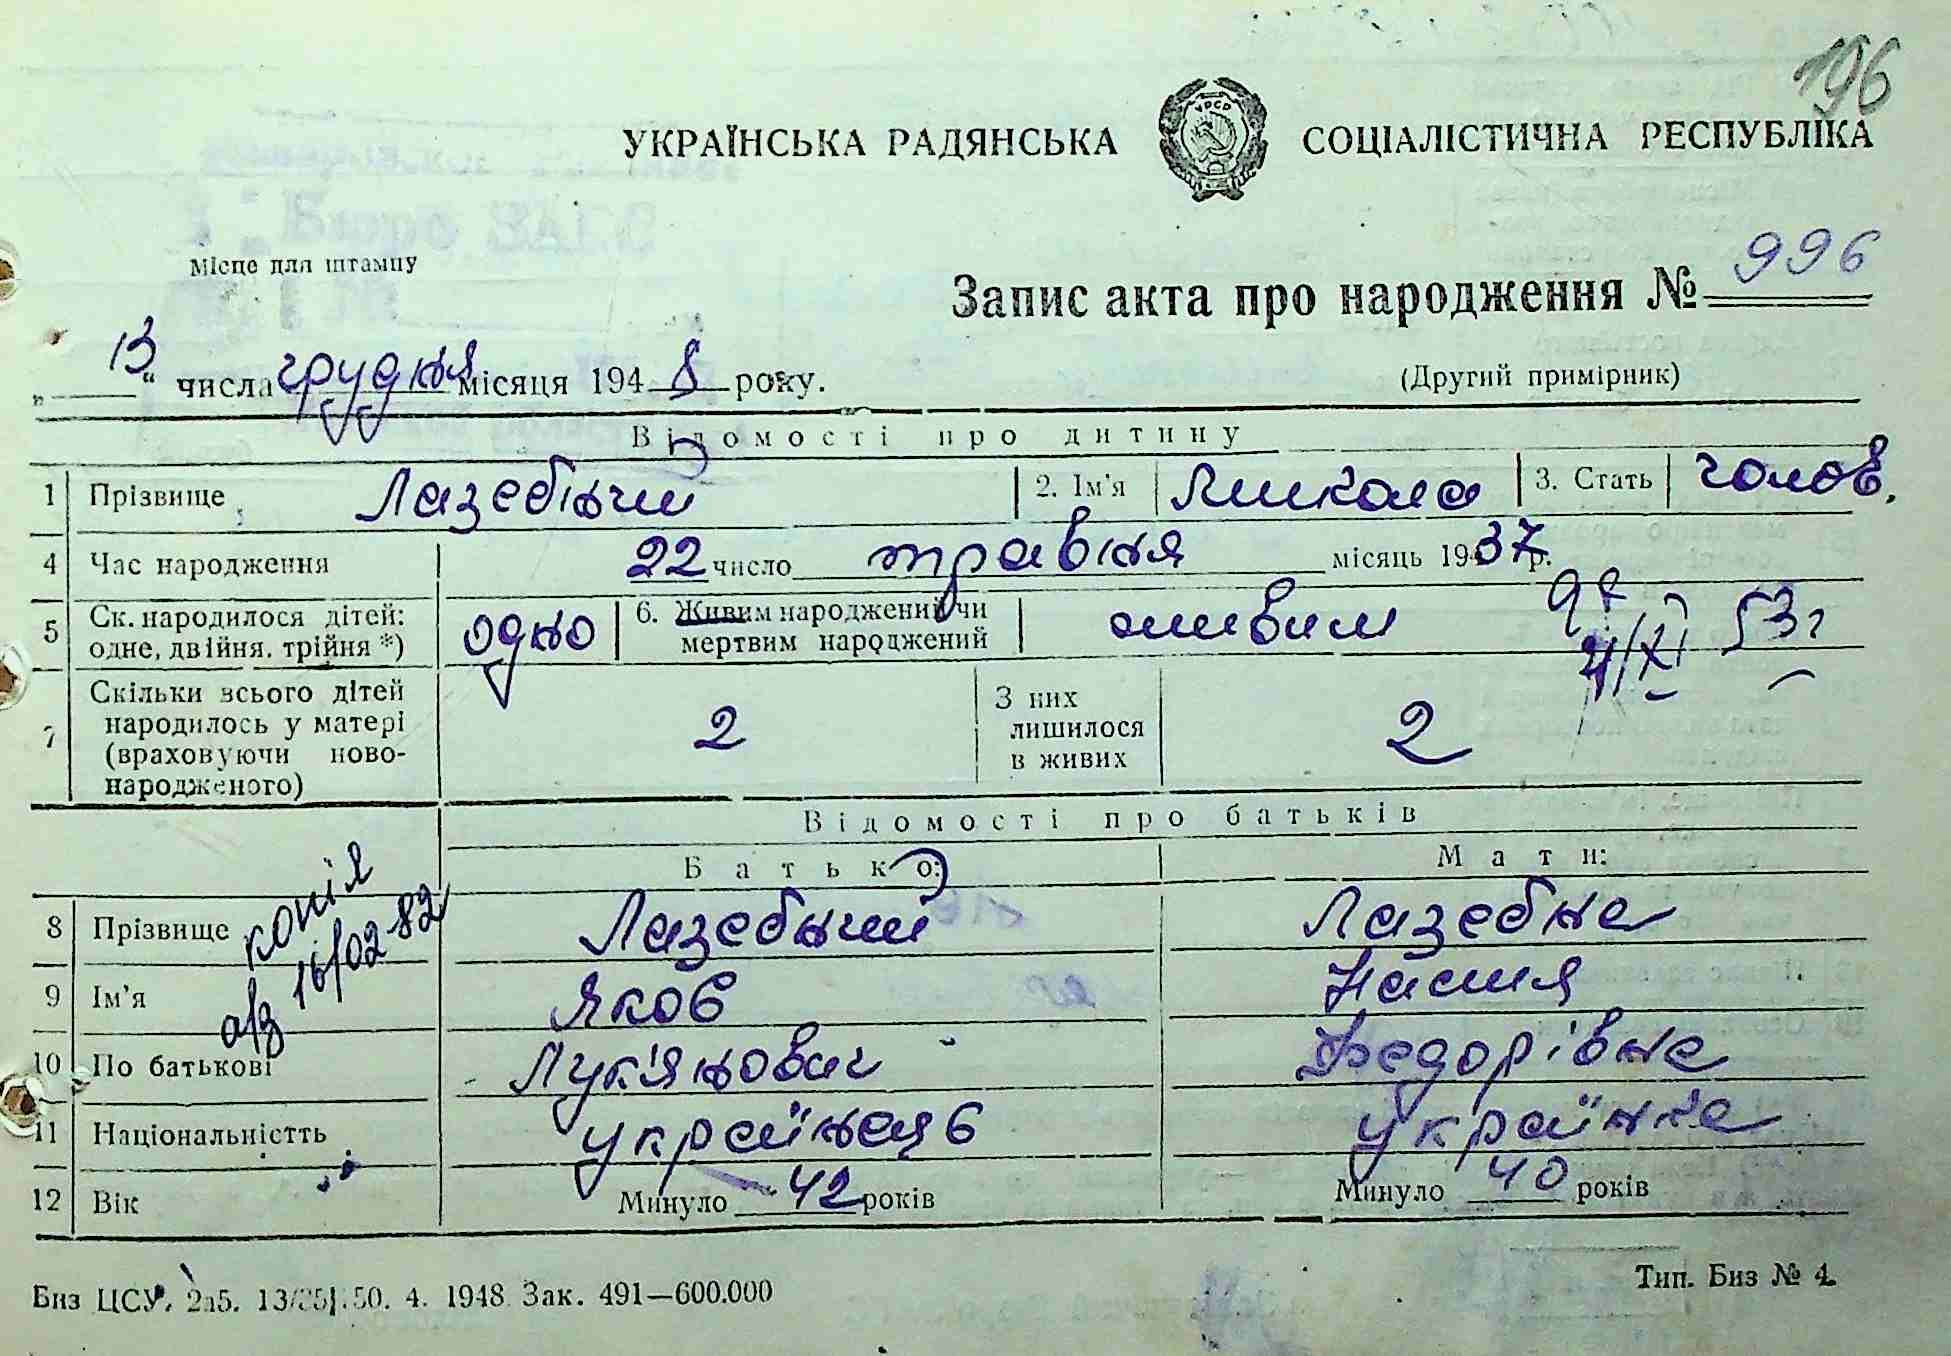 196
УКРАЇНСЬКА РАДЯНСЬКА СОЦІАЛІСТИЧНА РЕСПУБЛІКА
УРСР
Бюро ЗАГС
Місце для штампу
Запис акта про народження № 996
„ 13 “ числа грудня місяця 1948 року.
(Другий примірник)
Відомості про дитину
1 Прізвище Лазебний 2. Ім'я Микола 3. Стать чолов.
4 Час народження 22 число травня місяць 1937 р.
5 Ск. народилося дітей: одне, двійня, трійня *) одно 6. Живим народжений чи мертвим народжений живим
4/XI 53г
7 Скільки всього дітей народилось у матері (враховуючи новонародженого) 2 З них лишилося в живих 2
Відомості про батьків
Батько: Мати:
копія
а/з 16/02 82
8 Прізвище Лазебний Лазебна
9 Ім'я Яков Настя
10 По батькові Лук'янович Федорівна
11 Національністть українець українка
12 Вік Минуло 42 років Минуло 40 років
Биз ЦСУ. 2а5. 50. 4. 1948 Зак. 491—600.000
Тип. Биз № 4.